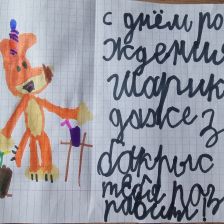 с днём ро
ждени
шарик
даже з
бакрыс
тебя поз